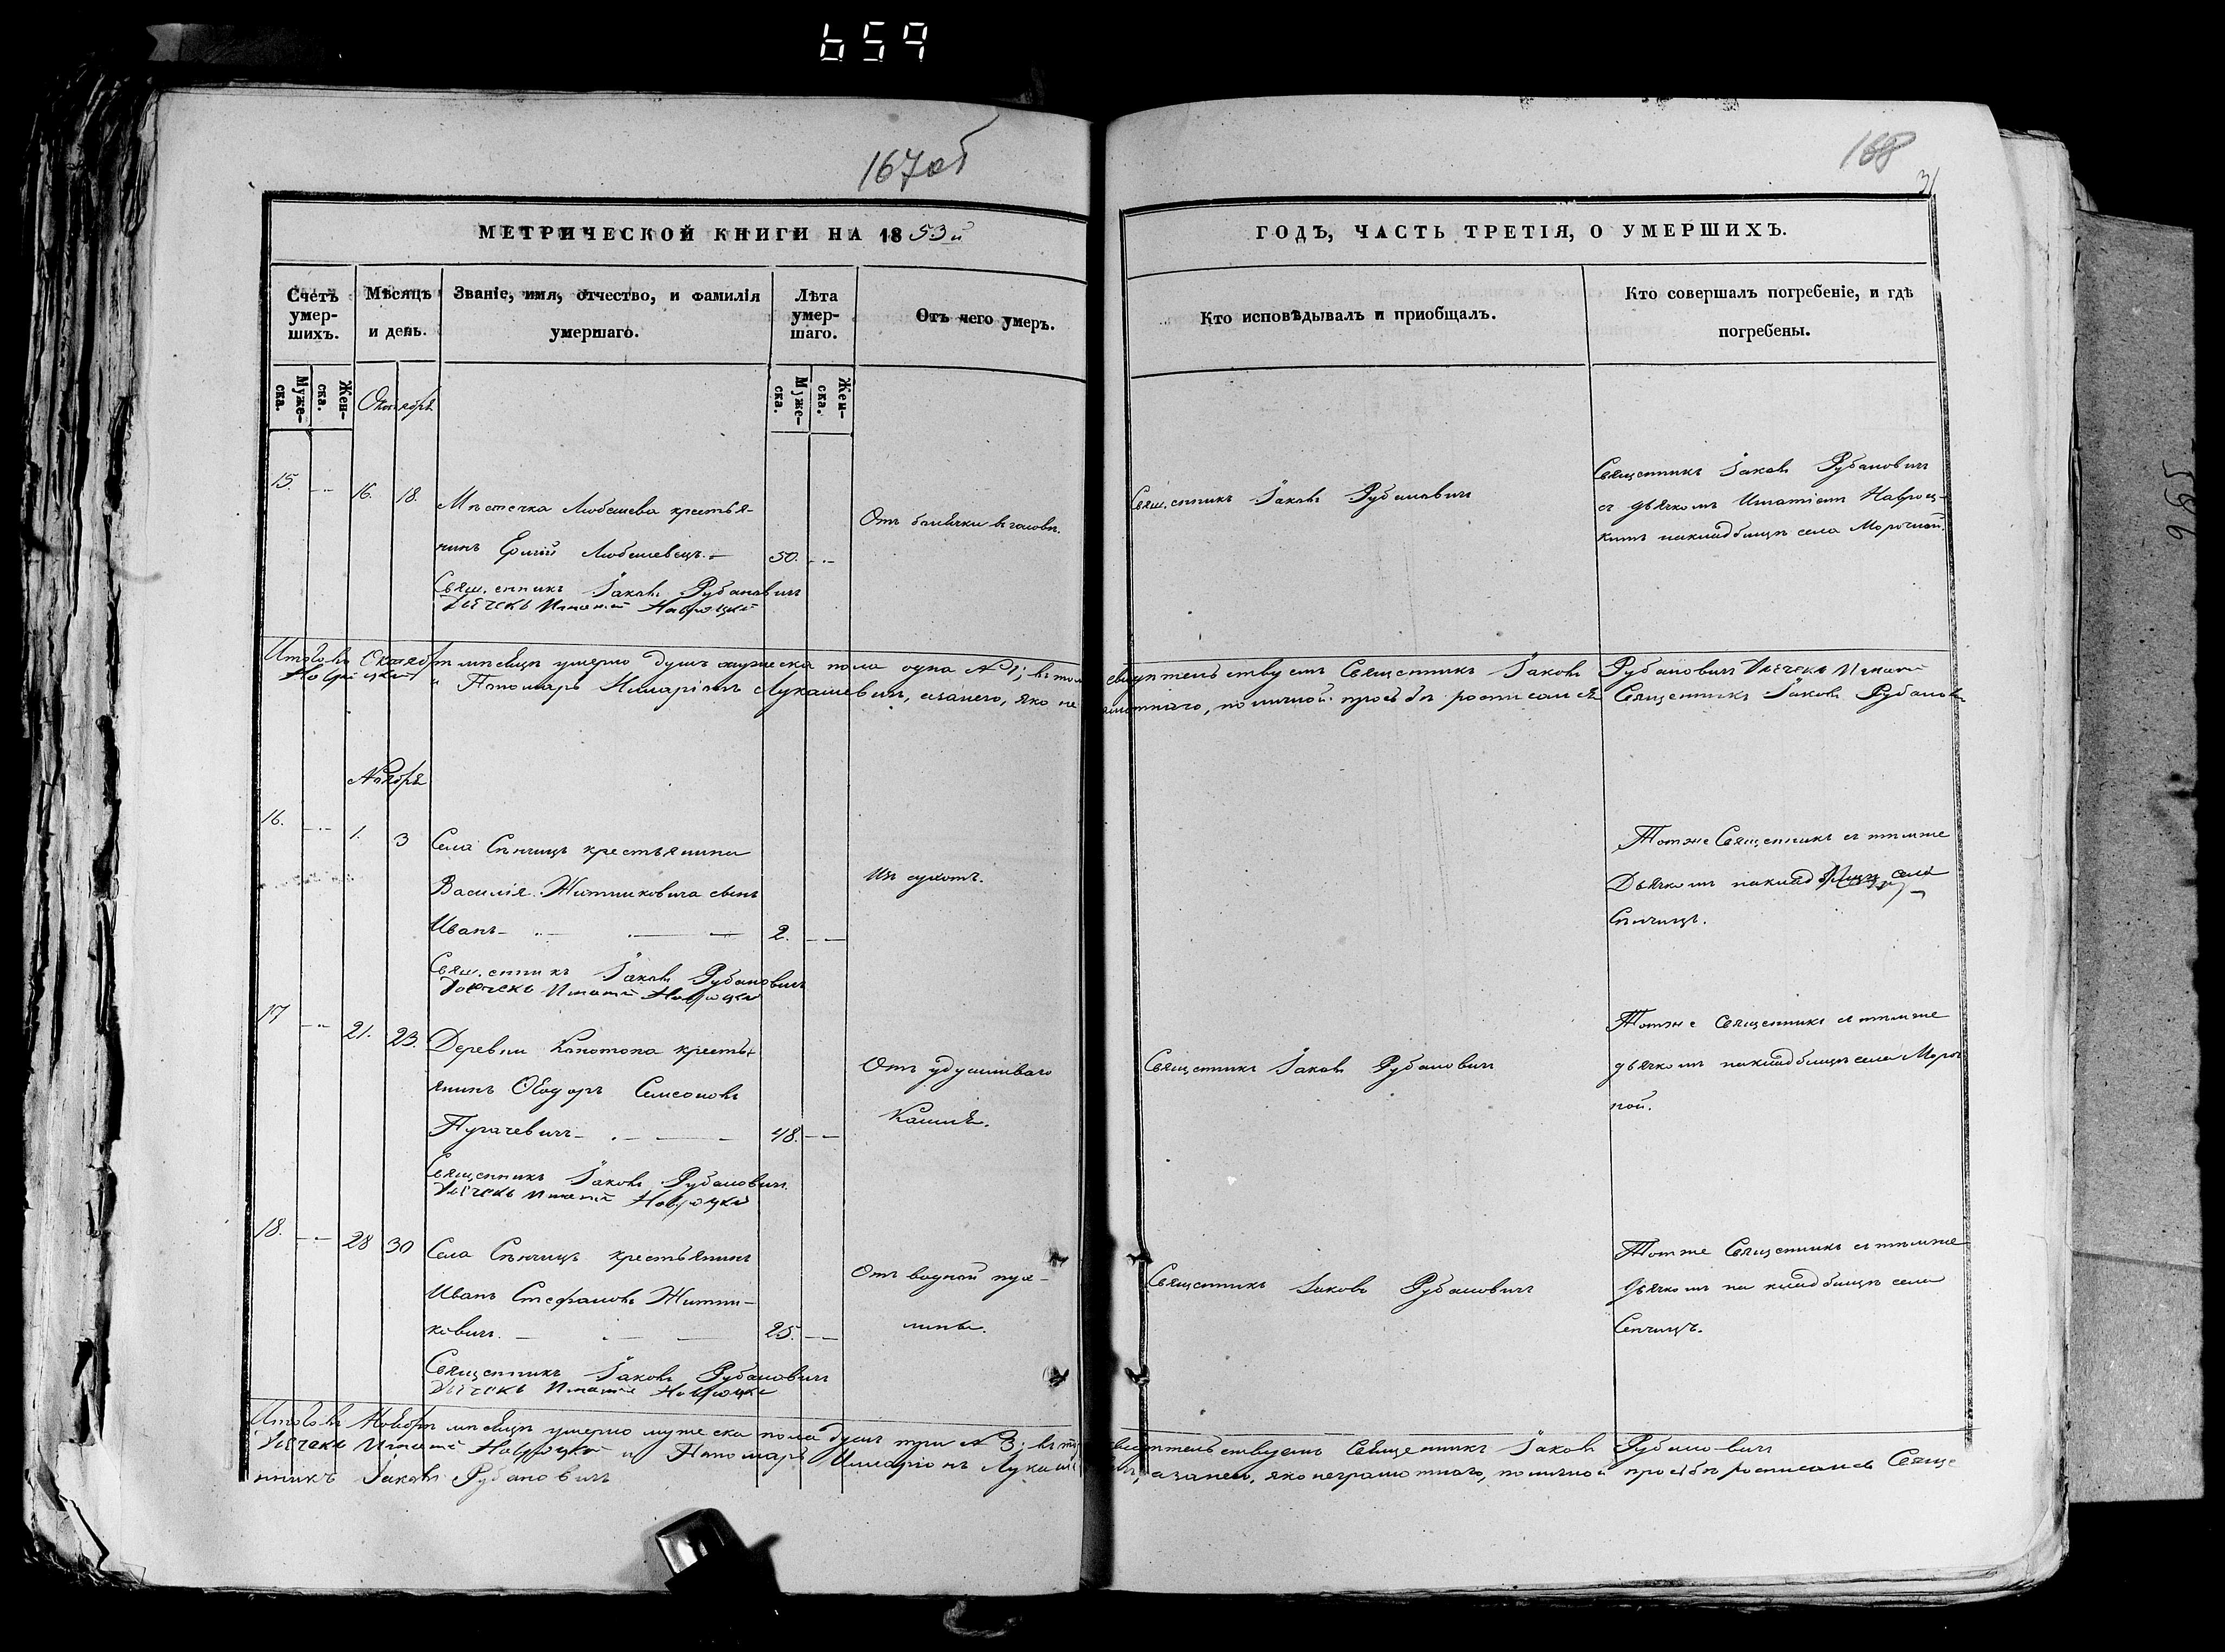 659
167об
168
31
МЕТРИЧЕСКОЙ КНИГИ НА 1853й
ГОДЪ, ЧАСТЬ ТРЕТІЯ, О УМЕРШИХЪ.
Счетъ умер-
шихъ.
Мѣсяцъ
и день.
Званіе, имя, отчество, и фамилія
умершаго.
Лѣта
умер-
шаго.
Отъ чего умеръ.
Кто исповѣдывалъ и приобщалъ.
Кто совершалъ погребеніе, и гдѣ
погребены.
Муже-
ска.
Жен-
ска.
Октябрь
Муже-
ска.
Жен-
ска.
15.
16.
18.
Мѣстечка Любешева крестья-
нинъ Любешевецъ.
50.
Священникъ Іаковъ Рубановичъ
Дьячекъ Игнатій Навроцкій
Отъ
Священникъ Іаковъ Рубановичъ
Священникъ Іаковъ Рубановичъ
съ дьячкомъ Игнатіемъ Навроц-
кимъ на кладбищѣ села Морочной.
Итого въ Октябрѣ мѣсяцѣ умерло душъ мужеска пола одна № 1; въ томъ свидѣтельствуемъ Священникъ Іаковъ Рубановичъ Дьячекъ Игнатій
Навроцкій и Пономарь Иларіонъ Лукашевичъ, а за него, яко неграмотнаго, по личной просьбѣ росписался Священникъ Іаковъ Рубанович
Ноябрь
16.
1.
3
Села Сѣнчицъ крестьянина
Василія Житниковича сынъ
Иванъ
2.
Священникъ Іаковъ Рубановичъ
Дьячекъ Игнатій Навроцкій
Изъ сухотъ.
Тотже Священникъ съ тѣмже
Дьячкомъ на кладбищѣ села
Сѣнчицъ.
17
21.
23.
Деревни Конотопа кресть-
янинъ Ѳеодоръ Самсоновъ
Пугачевичъ
48.
Священникъ Іаковъ Рубановичъ
Дьячекъ Игнатій Навроцкій
Отъ удушливаго
Кашля.
Священникъ Іаковъ Рубановичъ
Тотже Священникъ съ тѣмже
дьячкомъ на кладбищѣ села Мороч
ной.
18.
28
30
Села Сѣнчицъ крестьянинъ
Иванъ Стефановъ Житни-
ковичъ.
25.
Священникъ Іаковъ Рубановичъ
Дьячекъ Игнатій Навроцкій
Отъ водной пух-
лины.
Священникъ Іаковъ Рубановичъ
Тотже Священникъ съ тѣмже
дьячкомъ на кладбищѣ села
Сенчицъ.
Итого въ Ноябрѣ мѣсяцѣ умерло мужеска пола душъ три № 3; въ томъ свидѣтельствуемъ Священникъ Іаковъ Рубановичъ
Дьячекъ Игнатій Навроцкій и Пономарь Иларіонъ Лукашевичъ, а за него, яко неграмотнаго, по личной просьбѣ росписался Свяще
нникъ Іаковъ Рубановичъ